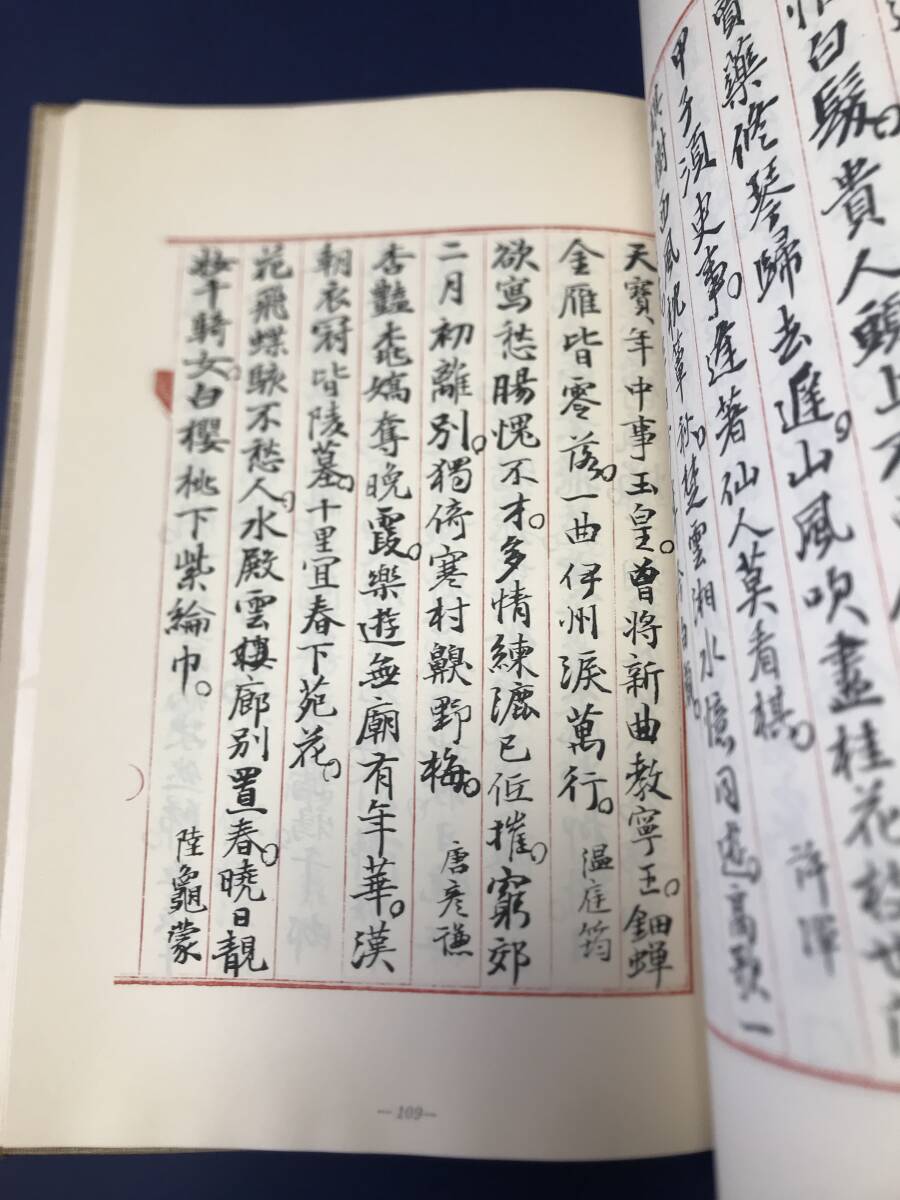 惟白髮。貴人頭上不
賣藥修琴歸去遲。山風吹盡桂花枝。世間
甲子須臾事。逢著仙人莫看棋。 許渾
樹西風枕簟秋。楚雲湘水憶同遊。高歌一
天寶年中事玉皇。曾將新曲教寧王。鈿蟬
金雁皆零落。一曲伊州淚萬行。 温庭筠
欲寫愁腸愧不才。多情練漉已低摧。窮郊
二月初離別。獨倚寒村齅野梅。 唐彥謙
杏豔桃嬌奪晚霞。樂遊無廟有年華。漢
朝衣冠皆陵墓。十里宜春下苑花。
花飛蝶駭不愁人。水殿雲樓廊別置春。曉日靚
妝千騎女。白櫻桃下紫綸巾。 陸龜蒙
—109—